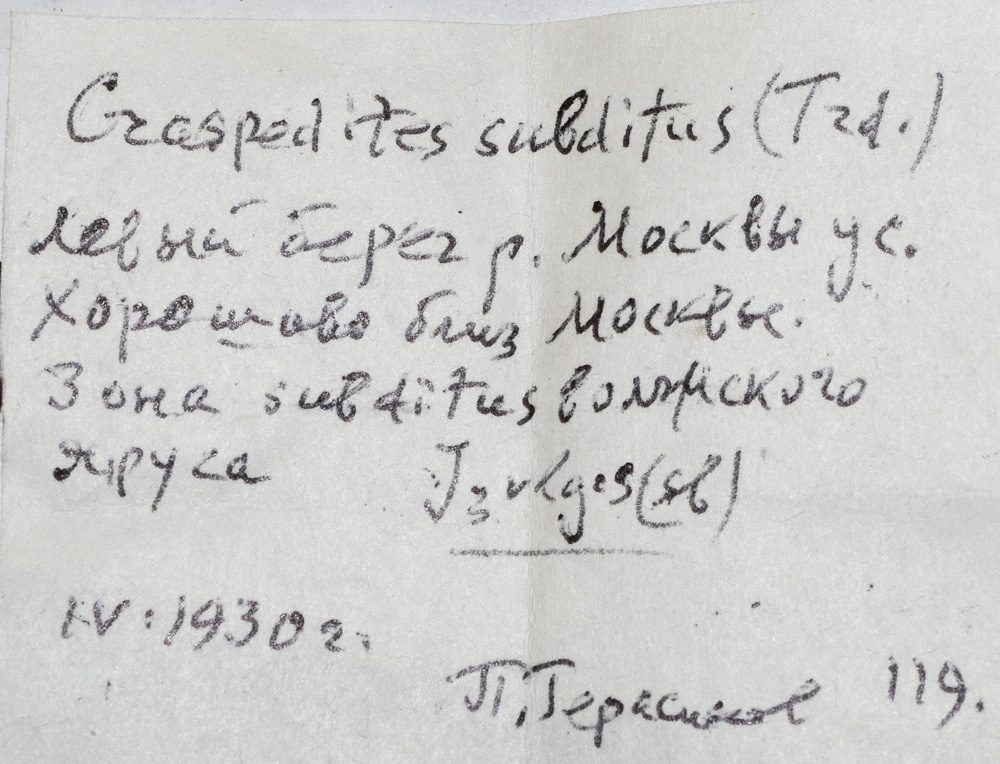 Craspedites subditus (Trd.)
левый берег р. Москвы у с.
Хорошово близ Москвы.
Зона subditus волжского
яруса J3 vlg.s(sb)
IV.1930 г.
П. Герасимов 119.